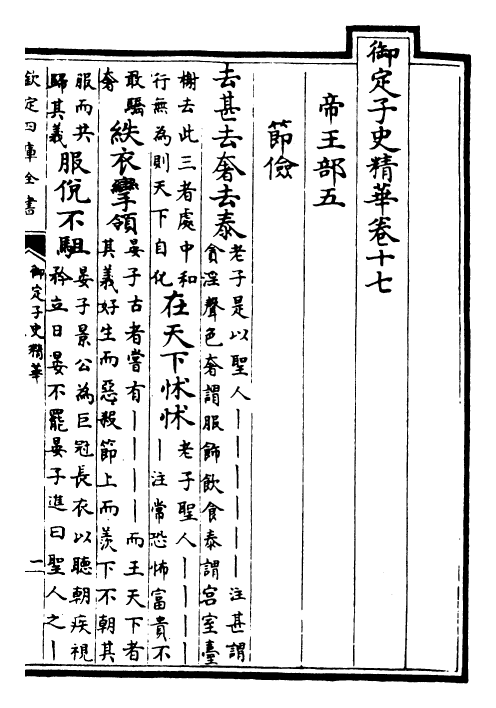 御定子史精華卷十七
帝王部五
節儉
去甚去奢去泰老子是以聖人｜｜｜｜｜｜注甚謂
貪淫聲色奢謂服飾飲食泰謂宫室臺
榭去此三者處中和
行無為則天下自化在天下怵怵老子聖人｜｜｜｜
｜注常恐怖富貴不
敢驕
奢紩衣攣領晏子古者嘗有｜｜｜｜而王天下者
其義好生而惡殺節上而羨下不朝其
服而共
歸其義服侻不駔晏子景公為巨冠長衣以聽朝疾視
矜立日晏不罷晏子進曰聖人之｜
欽定四庫全書
御定子史精華
一